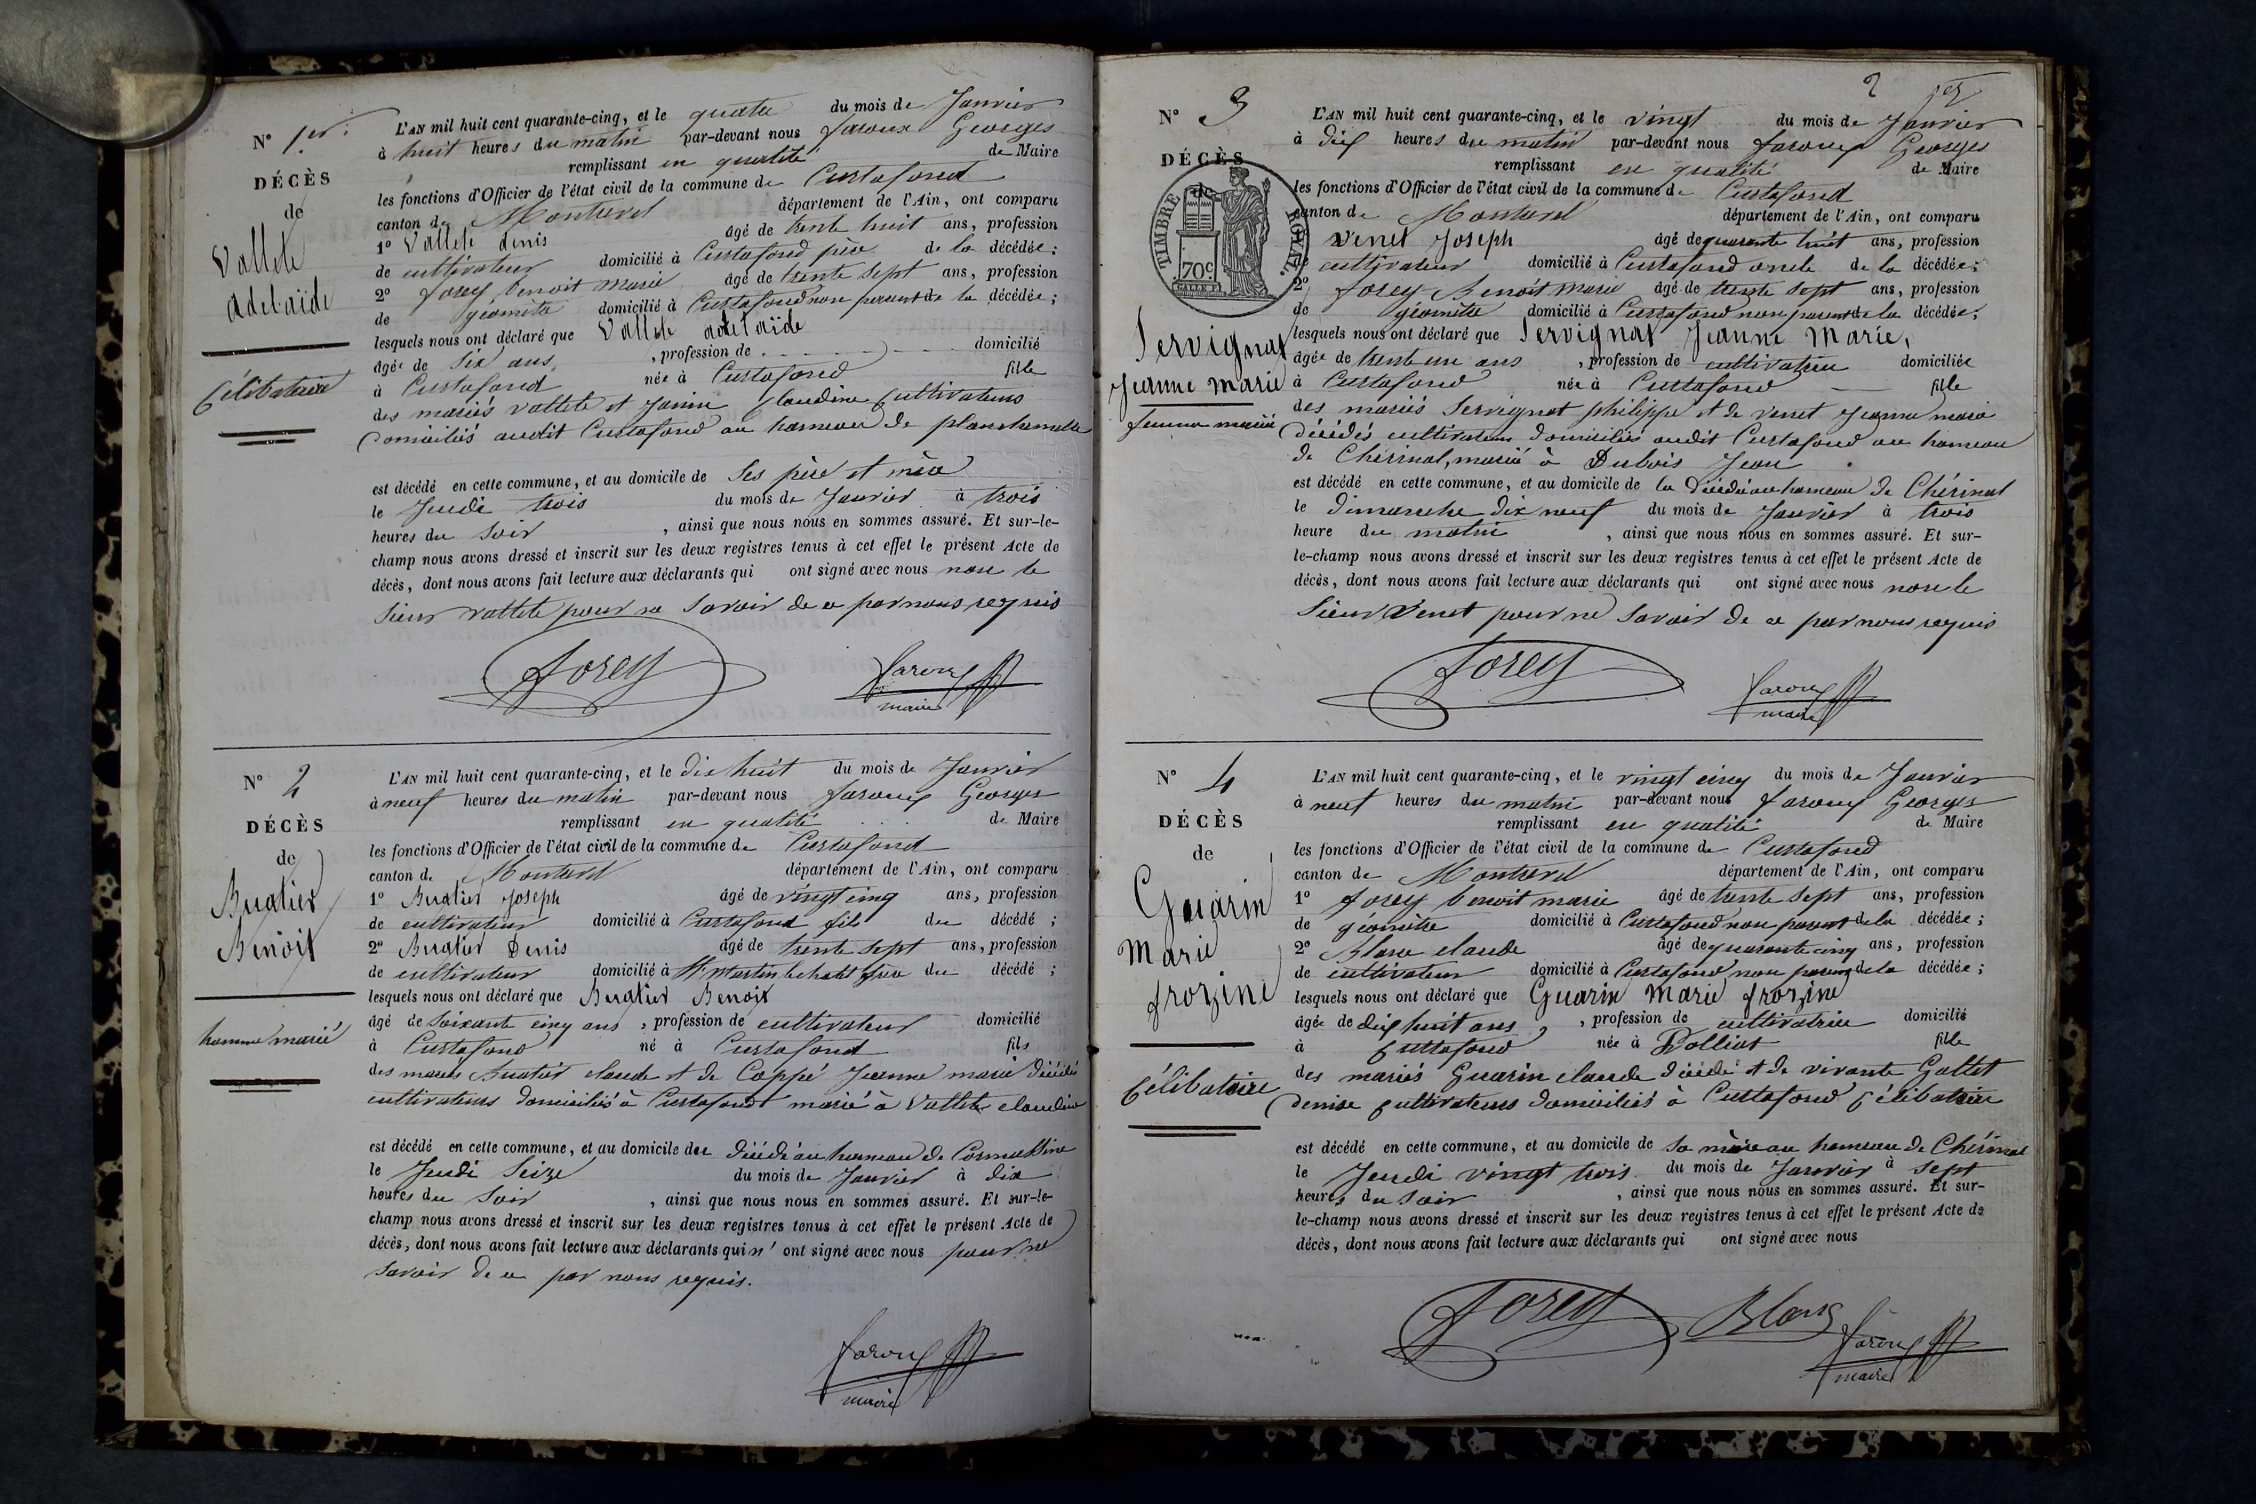 N° 1er.
DÉCÈS
de
Vallete
adelaïde
Célibataire
L'AN mil huit cent quarante-cinq, et le quatre du mois de Janvier
à huit heures du matin par-devant nous faroux Georges
remplissant en qualité de Maire
les fonctions d'Officier de l'état civil de la commune de Curtafond
canton de Montrevel département de l'Ain, ont comparu
1° Vallete denis âgé de trente huit ans, profession
de cultivateur domicilié à Curtafond père de la décédée;
2° forey, benoit marie âgé de trente sept ans, profession
de géomètre domicilié à Curtafond non parent de la décédée;
lesquels nous ont déclaré que Vallete adelaïde
âgée de six ans, , profession de domicilié
à Curtafond née à Curtafond fille
des mariés vallete et Janin Claudine Cultivateurs
Domiciliés audit Curtafond au hameau de
est décédé en cette commune, et au domicile de Ses père et mère
le Jeudi trois du mois de Janvier à trois
heures du Soir , ainsi que nous nous en sommes assuré. Et sur-le-
champ nous avons dressé et inscrit sur les deux registres tenus à cet effet le présent Acte de
décès, dont nous avons fait lecture aux déclarants qui ont signé avec nous non le
Sieur vallete pour ne Savoir de ce par nous requis
forey
faroux
maire
N° 2
DÉCÈS
de
Buatier
Benoit
homme marié
L'AN mil huit cent quarante-cinq, et le dix huit du mois de Janvier
à neuf heures du matin par-devant nous faroux Georges
remplissant en qualité de Maire
les fonctions d'Officier de l'état civil de la commune de Curtafond
canton de Montrevel département de l'Ain, ont comparu
1° Buatier Joseph âgé de vingt cinq ans, profession
de cultivateur domicilié à Curtafond fils du décédé ;
2° Buatier Denis âgé de trente sept ans, profession
de cultivateur domicilié à St martin le chatel du décédé ;
lesquels nous ont déclaré que Buatier Benoit
âgé de Soixante cinq ans , profession de cultivateur domicilié
à Curtafond né à Curtafond fils
des mariés Buatier claude et de Coppé Jeanne marie Décédés
cultivateurs domiciliés à Curtafond marié à Vallete claudine
est décédé en cette commune, et au domicile du décédé au hameau de
le Jeudi Seize du mois de Janvier à dix
heures du Soir , ainsi que nous nous en sommes assuré. Et sur-le-
champ nous avons dressé et inscrit sur les deux registres tenus à cet effet le présent Acte de
décès, dont nous avons fait lecture aux déclarants qui n' ont signé avec nous pour ne
savoir de ce par nous requis.
faroux
maire
2
N° 3
DÉCÈS
de
TIMBRE ROYAL.
70c
Servignat
Jeanne marie
femme mariée
L'AN mil huit cent quarante-cinq, et le vingt du mois de Janvier
à dix heures du matin par-devant nous faroux Georges
remplissant en qualité de Maire
les fonctions d'Officier de l'état civil de la commune de Curtafond
canton de Montrevel département de l'Ain, ont comparu
venet Joseph âgé de quarante huit ans, profession
cultivateur domicilié à Curtafond oncle de la décédée;
2° forey Benoit marie âgé de trente sept ans, profession
de géomètre domicilié à Curtafond non parent de la décédée;
lesquels nous ont déclaré que Servignat Jeanne Marie,
âgée de trente un ans , profession de cultivatrice domiciliée
à Curtafond née à Curtafond fille
des mariés Servignat philippe et de venet Jeanne marie
Décédés cultivateurs domiciliés audit Curtafond au hameau
de Chérinal, marié à Dubois Jean
est décédé en cette commune, et au domicile de la Décédée au hameau de Chérinal
le dimanche dix neuf du mois de Janvier à trois
heure du matin , ainsi que nous nous en sommes assuré. Et sur-
le-champ nous avons dressé et inscrit sur les deux registres tenus à cet effet le présent Acte de
décès, dont nous avons fait lecture aux déclarants qui ont signé avec nous non le
Sieur Venet pour ne Savoir de ce par nous requis
forey
faroux
maire
N° 4
DÉCÈS
de
Guarin
Marie
frozine
Célibataire
L'AN mil huit cent quarante-cinq, et le vingt cinq du mois de Janvier
à neuf heures du matin par-devant nous faroux Georges
remplissant en qualité de Maire
les fonctions d'Officier de l'état civil de la commune de Curtafond
canton de Montrevel département de l'Ain, ont comparu
1° forey benoit marie âgé de trente sept ans, profession
de géomètre domicilié à Curtafond non parent de la décédée;
2° Blanc claude âgé de quarante cinq ans, profession
de cultivateur domicilié à Curtafond non parent de la décédée;
lesquels nous ont déclaré que Guarin Marie frozine
âgée de dix huit ans , profession de cultivatrice domicilié
à Curtafond née à Polliat fille
des mariés Guarin claude décédé et de vivante Gallet
Denise Cultivateurs domiciliés à Curtafond Célibataire
est décédé en cette commune, et au domicile de sa mère au hameau de Chérinal
le Jeudi vingt trois du mois de Janvier à sept
heures du soir , ainsi que nous nous en sommes assuré. Et sur-
le-champ nous avons dressé et inscrit sur les deux registres tenus à cet effet le présent Acte de
décès, dont nous avons fait lecture aux déclarants qui ont signé avec nous
forey Blanc
faroux
maire